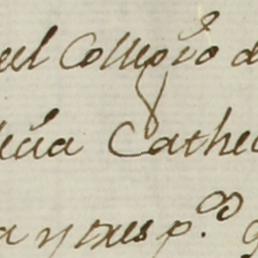 el Collegio d
cia Cathe
a y tres p.os